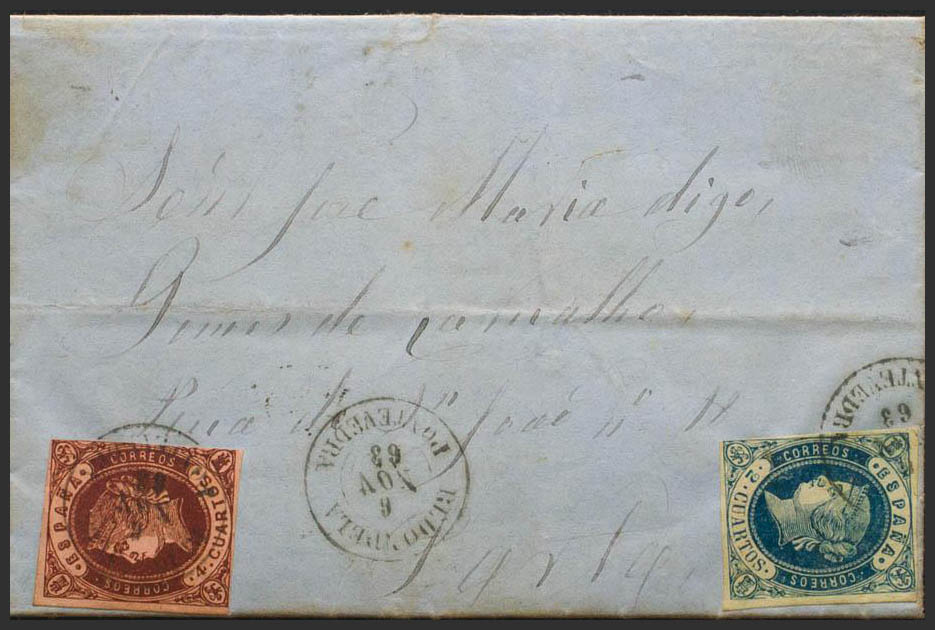 José Maria digo,
de Carvalho,
Rua de Sn José nº
PONTEVEDRA
63
NOV
6
REDONDELA
CORREOS
ESPAÑA
4 CUARTOS
CORREOS
CORREOS
2 CUARTOS
ESPAÑA
CORREOS
63